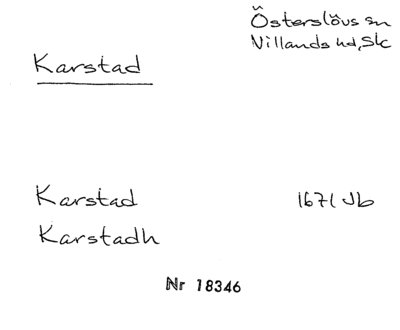 Österslövs sn
Villands hd, Sk
Karstad
Karstad 1671 Jb
Karstadh
Nr 18346